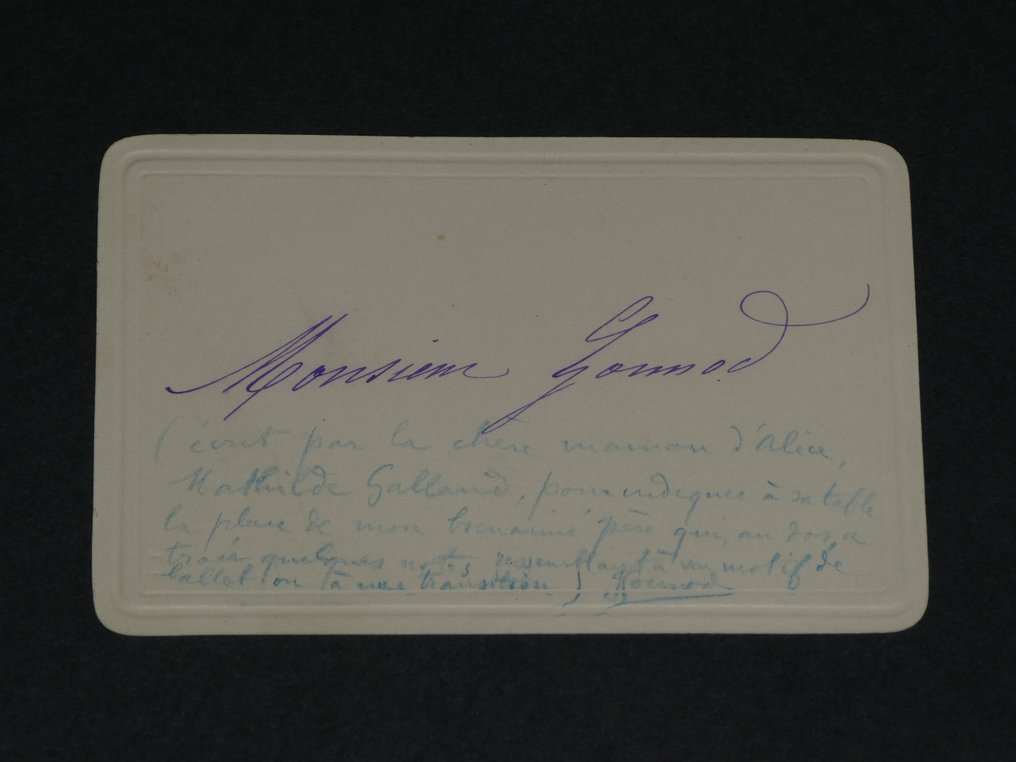 Monsieur Gounod
(écrit par la chère maman d'Alice,
Mathilde Galland, pour indiquer à sa table
la place de mon bienaimé père qui, au dos a
tracé quelques notes ressemblant à un motif de
ballet ou à une transition) Gounod